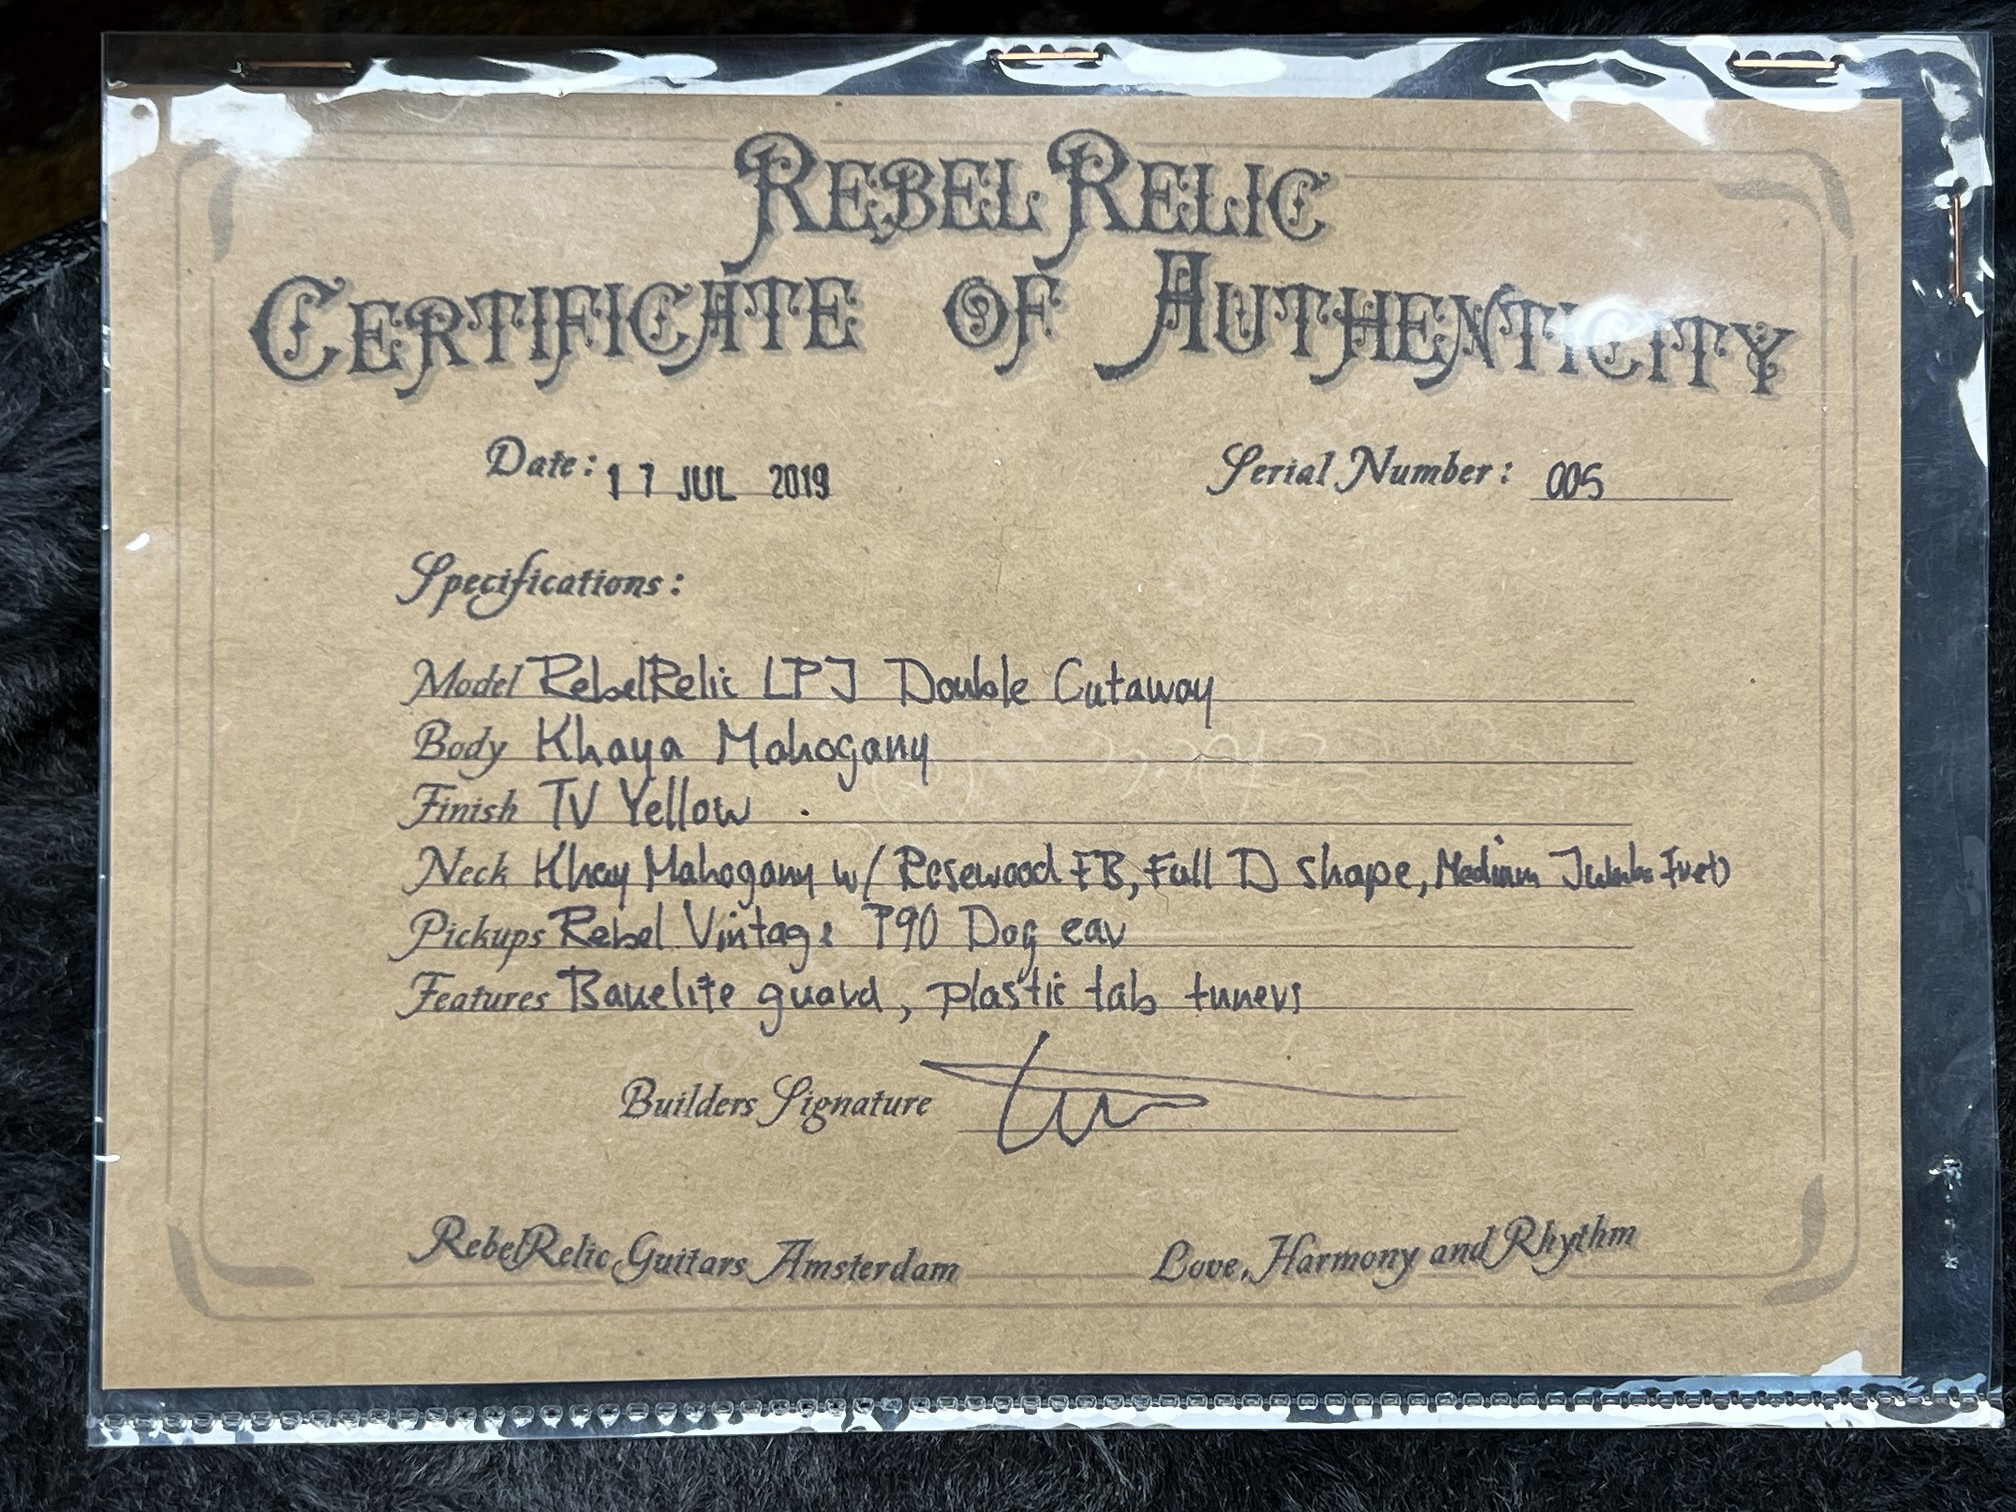 REBEL RELIC
CERTIFICATE OF AUTHENTICITY
Date: 17 JUL 2019
Serial Number: 005
Specifications:
Model RebelRelic LPJ Double Cutaway
Body Khaya Mahogany
Finish TV Yellow
Neck Khay Mahogany w/ Rosewood FB, Full D shape, Medium Jumbo Fret
Pickups Rebel Vintage P90 Dog ear
Features Bakelite guard, plastic tab tuners
Builders Signature
RebelRelic Guitars Amsterdam
Love, Harmony and Rhythm